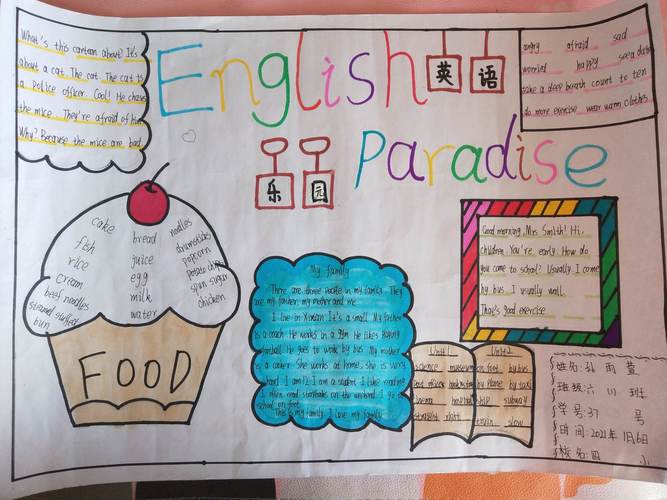 What's this cartoon about? It's
about a cat. The cat. The cat is
a police officer. Cool! He chase
the mice. They're afraid of him
Why? Because the mice are bad.
English
英语
乐园
Paradise
angry afraid sad
worried happy see a doctor
take a deep breath count to ten
do more exercise wear warm clothes
cake bread noodles
fish juice drumsticks
rice egg popcorn
cream milk potato chips
beef noodles water spun sugar
steamed stuffed chicken
bun
FOOD
My family
There are three people in my family. They
are my father, my mother and me.
I live in It's a small. My father
is a coach. He works in a gym. He likes playing
football. He goes to work by bus. My mother
is a She works at home, she is very
hard. I am 12. I am a student. I like reading
I often read storybooks on the weekend. I go
school on foot.
This is my family. I love my family.
Good morning, Mrs Smith! Hi,
children. You're early. How do
you come to school? Usually I come
by bus. I usually wall.
That's good exercise
Unit1 Unit2
science museum on foot by bus
post office bookstore by plane by taxi
cinema hospital ship subway
straight right train slow
姓名:孙雨萱
班级:六(1)班
学号:37号
时间:2021年1月6日
校名:四小